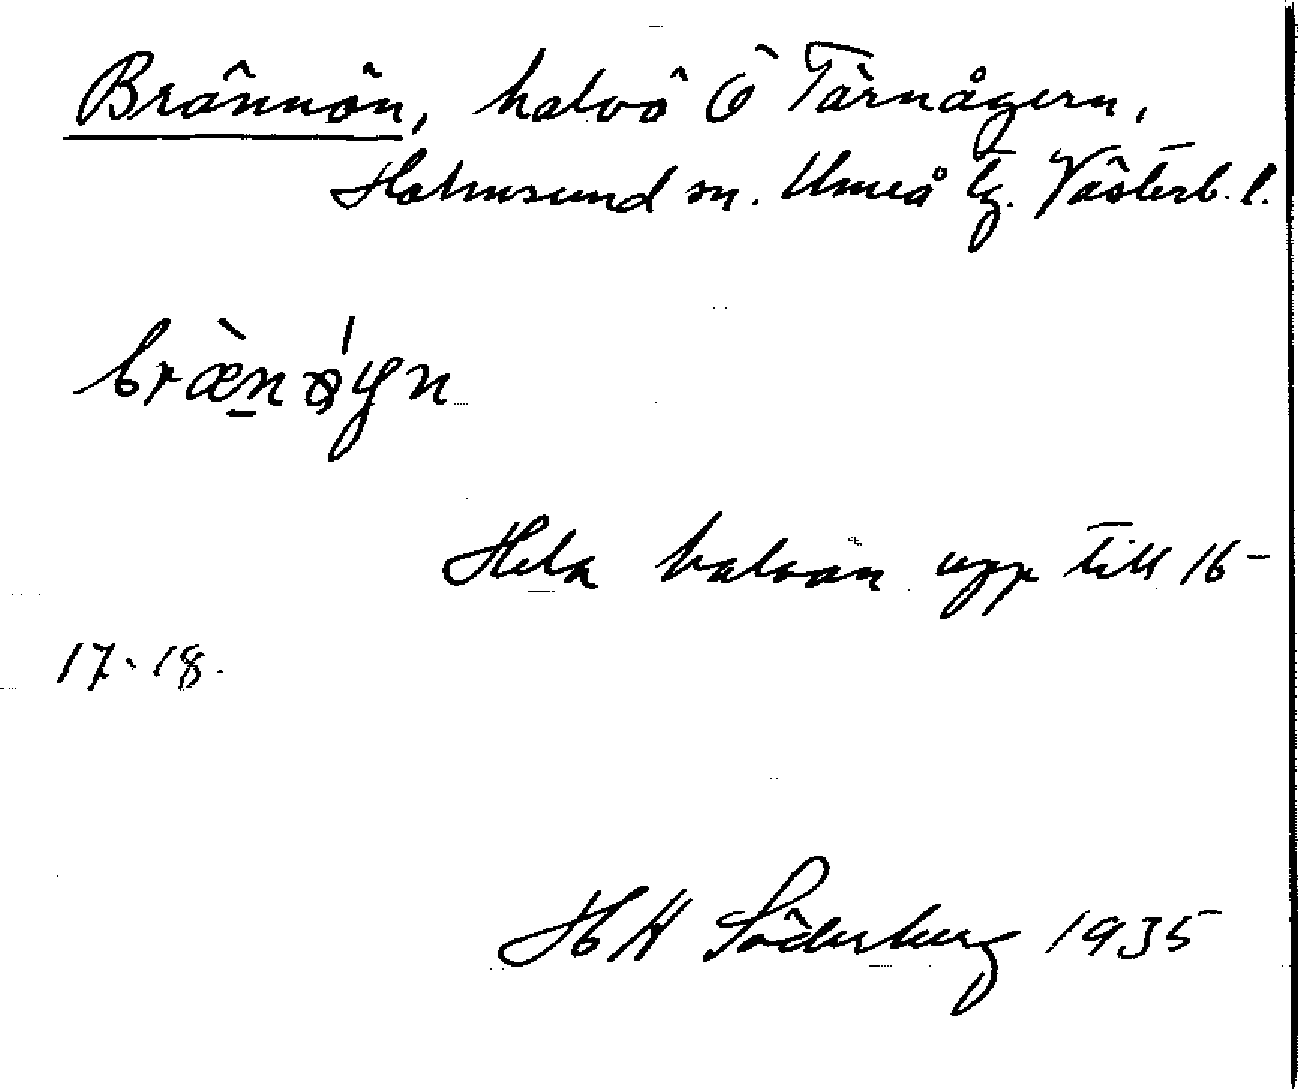 Brännön, halvö Ö Tärnågern,
Holmsund sn. Umeå tg. Västerb. l.
Hela halvön upp till 16-
17-18.
H H Söderberg 1935